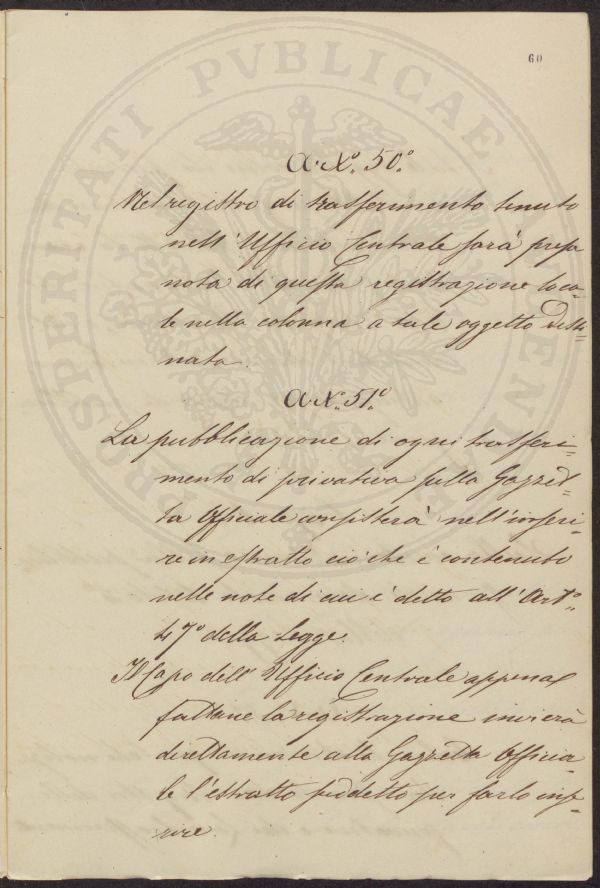 60
PROSPERITATI PVBLICAE AVGENDAE
Art.º 50.º
Nel registro di trasferimento tenuto
nell'Ufficio Centrale sarà presa
nota di questa registrazione loca=
le nella colonna a tale oggetto desti=
nata.
Art.º 51.º
La pubblicazione di ogni trasferi=
mento di privativa sulla Gazzet=
ta Officiale consisterà nell'inseri=
re in estratto ciò che è contenuto
nelle note di cui è detto all'Art.º
47º della Legge.
Il Capo dell'Ufficio Centrale appena
fattane la registrazione invierà
direttamente alla Gazzetta Officia=
le l'estratto suddetto per farlo inse=
rire.